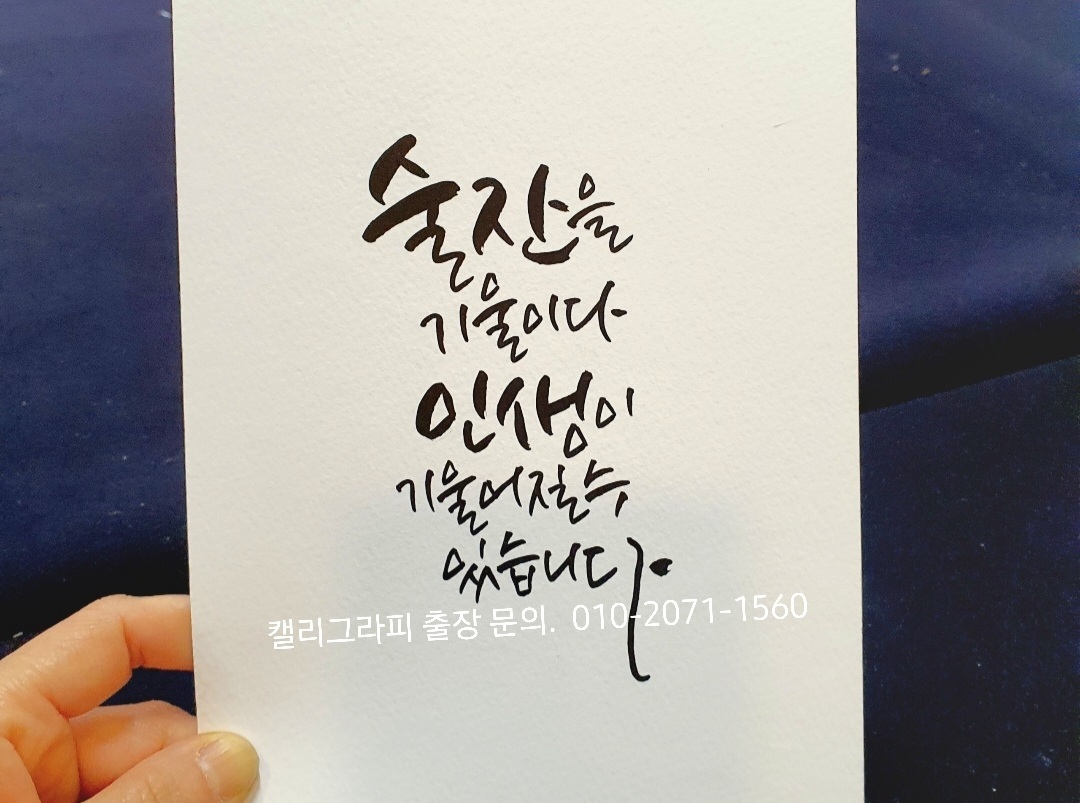 술잔을
기울이다
인생이
기울어질수
있습니다.
캘리그라피 출장 문의. 010-2071-1560